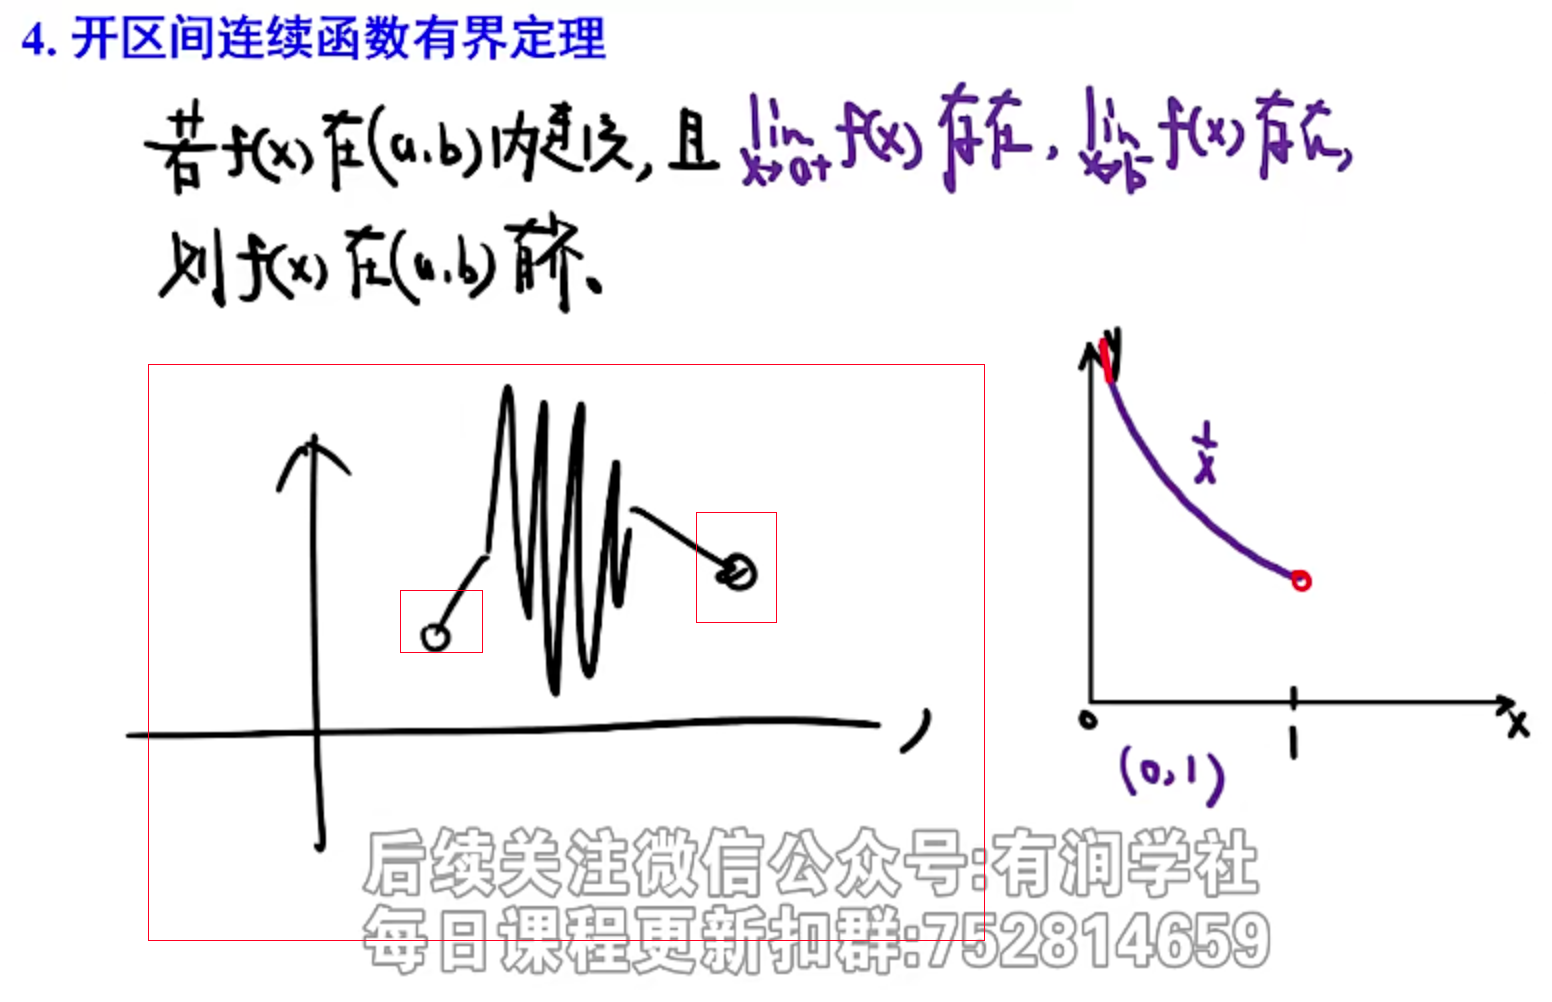 4. 开区间连续函数有界定理
若 f(x) 在(a,b)内连续, 且 lim x→a+ f(x) 存在, lim x→b- f(x) 存在,
则 f(x) 在(a,b) 有界.
y
1/x
0
1
x
(0,1)
后续关注微信公众号:有润学社
每日课程更新扣群:752814659